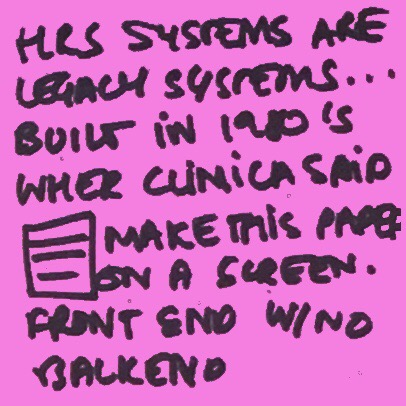 HRS SYSTEMS ARE
LEGACY SYSTEMS...
BUILT IN 1980'S
WHEN CLINICA SAID
MAKE THIS PAPER
ON A SCREEN.
FRONT END W/NO
BACKEND